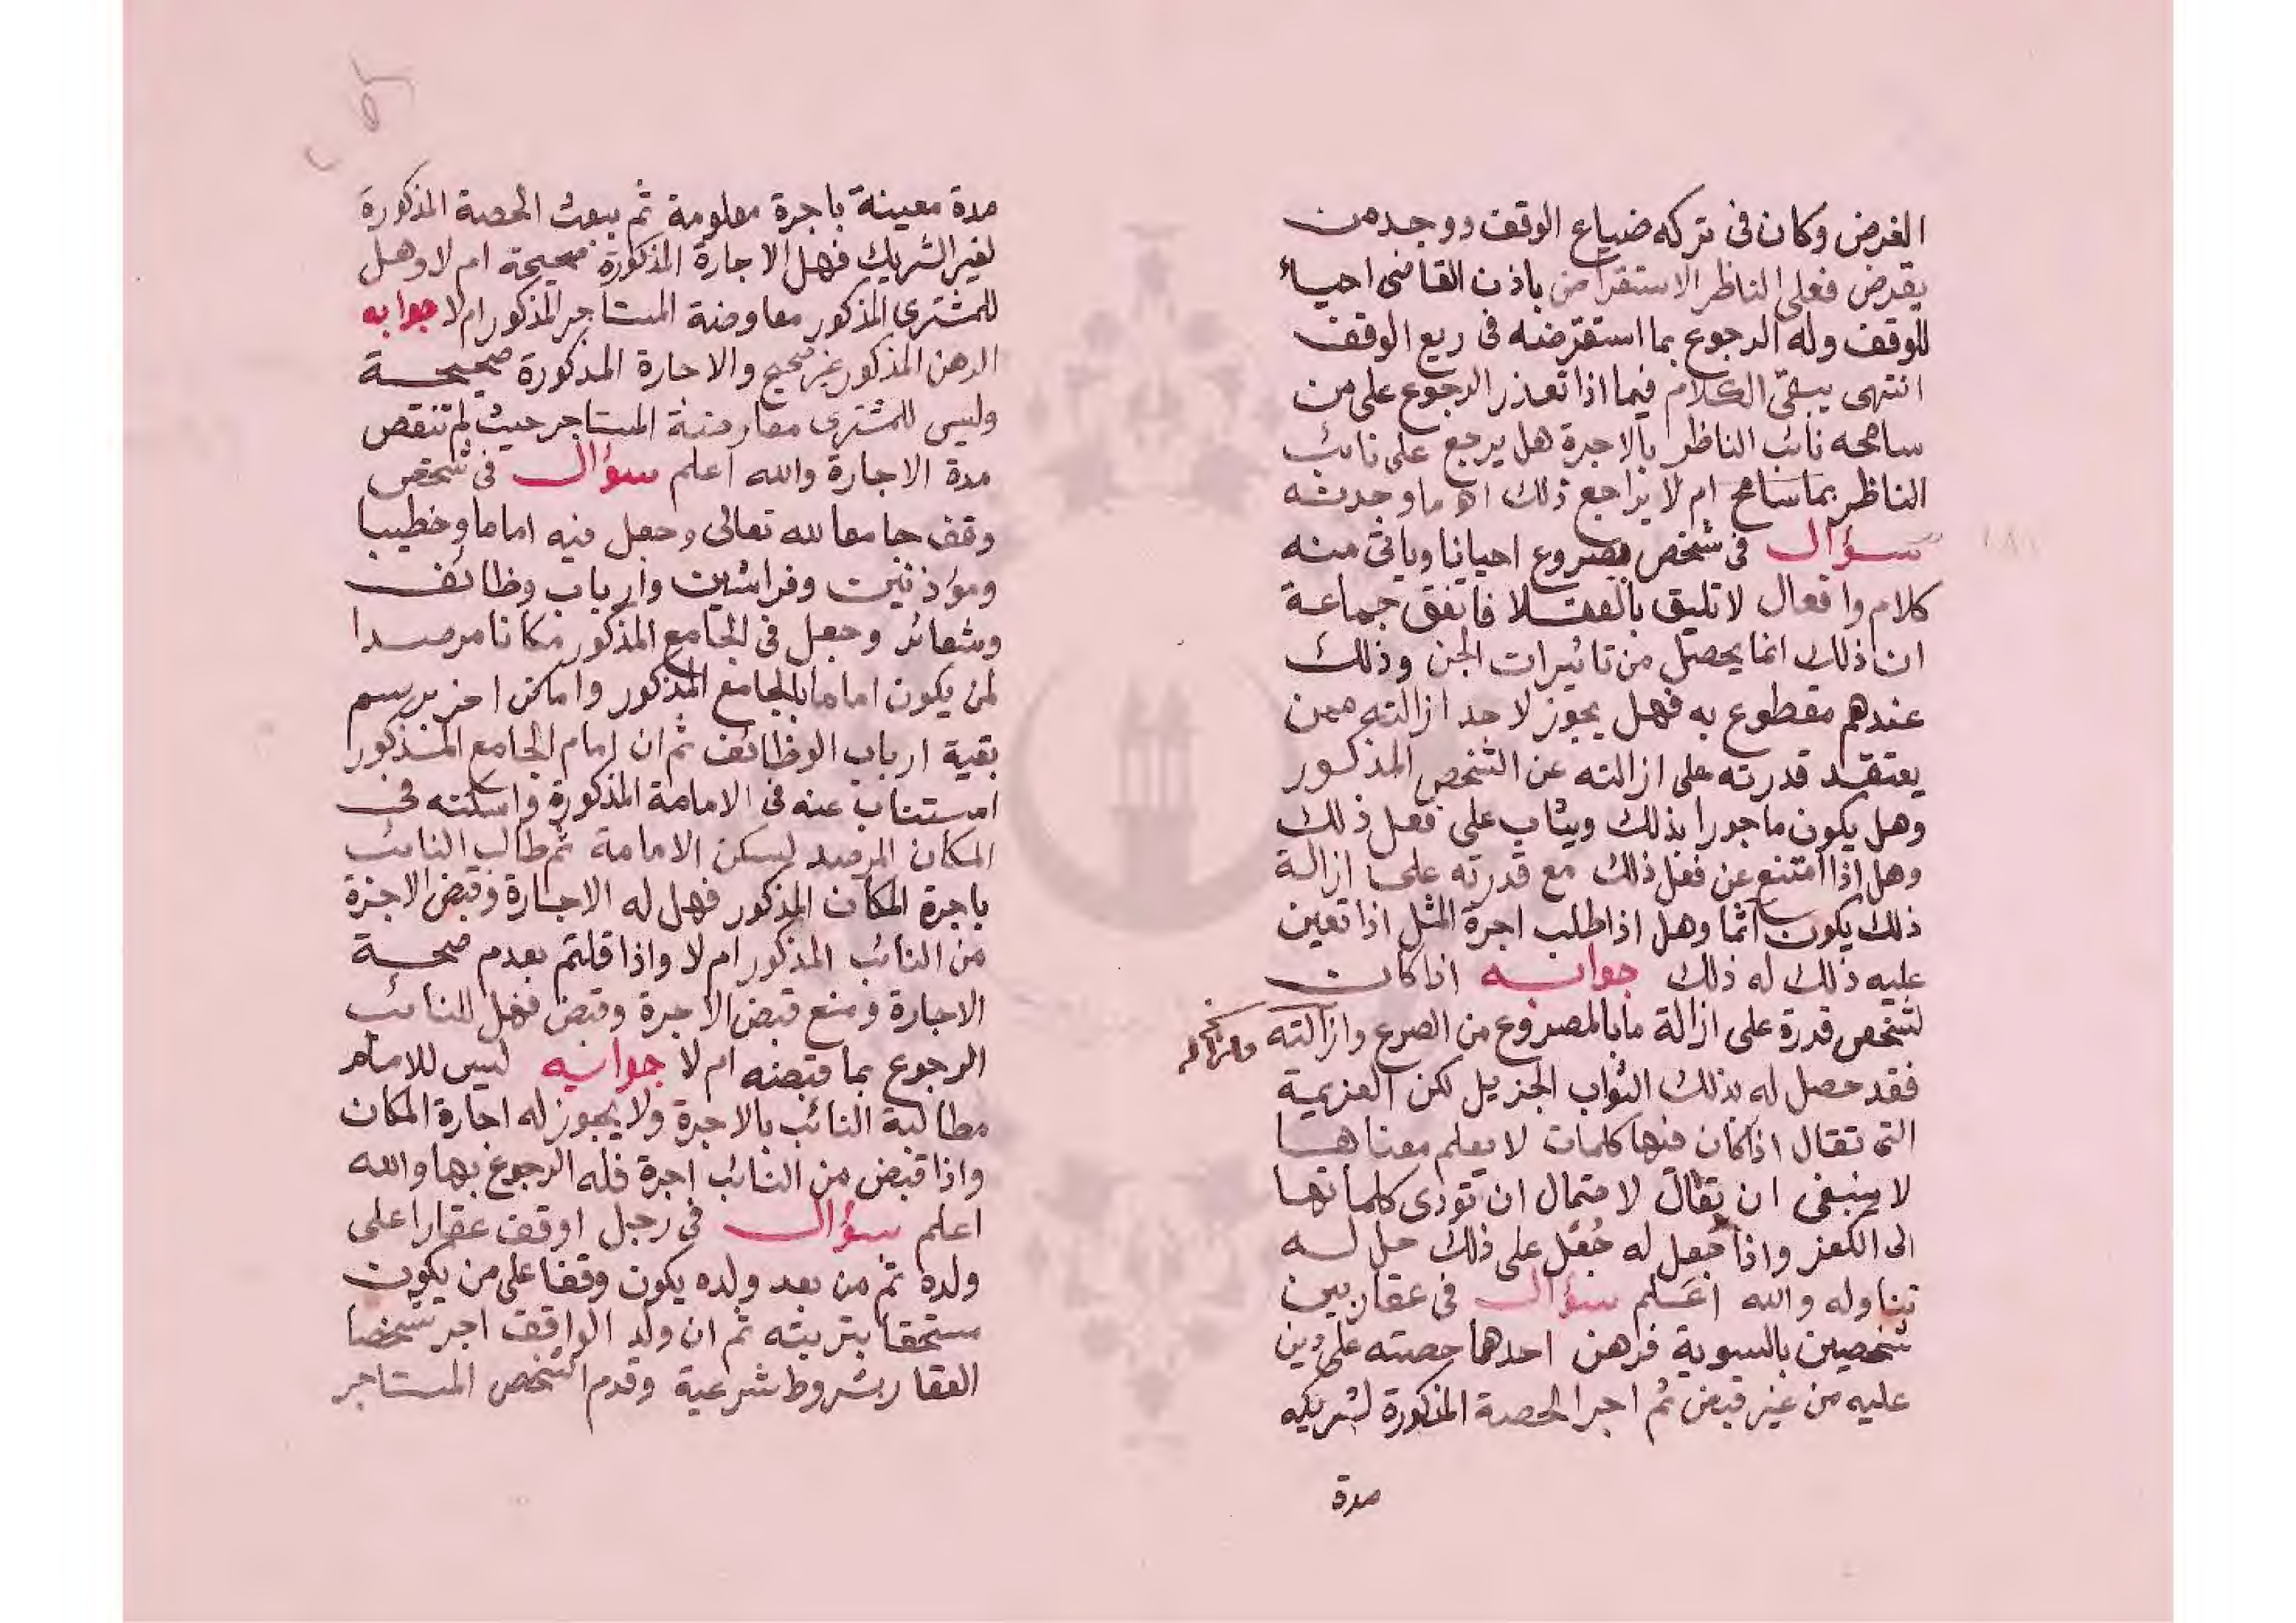 الغرض وكان فى تركه ضياع الوقف ووجد من
يقرض فعلى الناظر الاستقراض باذن القاضى احياء
للوقف وله الرجوع بما استقرضه فى ريع الوقف
انتهى يبقى الكلام فيما اذا تعذر الرجوع على من
سامحه نائب الناظر بالاجرة هل يرجع على نائب
الناظر بما سامح ام لا يراجع ذلك اه ما وجدته
سؤال فى شخص مصروع احيانا وياتى منه
كلام وافعال لا تليق بالعقلا فاتفق جماعة
ان ذلك انما يحصل من تاثيرات الجن وذلك
عندهم مقطوع به فهل يجوز لاحد ازالته ممن
يعتقد قدرته على ازالته عن الشخص المذكور
وهل يكون ماجورا بذلك ويثاب على فعل ذلك
وهل اذا امتنع عن فعل ذلك مع قدرته على ازالة
ذلك يكون آثما وهل اذا طلب اجرة المثل اذا تعين
عليه ذلك له ذلك جوابه اذا كان
لشخص قدرة على ازالة ما بالمصروع من الصرع وازالته
فقد حصل له بذلك الثواب الجزيل لكن العزيمة
التى تقال اذا كان فيها كلمات لا يعلم معناها
لا ينبغى ان تقال لاحتمال ان تؤدى كلماتها
الى الكفر واذا جعل له جُعْل على ذلك حل له
تناوله والله اعلم سؤال فى عقار بين
شخصين بالسوية فرهن احدهما حصته على دين
عليه من غير قبض ثم اجر الحصة المذكورة لشريكه
مدة
مدة معينة باجرة معلومة ثم بيعت الحصة المذكورة
لغير الشريك فهل الاجارة المذكورة صحيحة ام لا وهل
للمشترى المذكور معاوضة المستاجر المذكور ام لا جوابه
الرهن المذكور غير صحيح والاجارة المذكورة صحيحة
وليس للمشترى معارضة المستاجر حيث لم تنقض
مدة الاجارة والله اعلم سؤال فى شخص
وقف جامعا لله تعالى وجعل فيه اماما وخطيبا
ومؤذنين وفراشين وارباب وظائف
وشعائر وجعل فى الجامع المذكور مكانا مرصدا
لمن يكون اماما بالجامع المذكور واماكن اخر برسم
بقية ارباب الوظائف ثم ان امام الجامع المذكور
استناب عنه فى الامامة المذكورة واسكنه فى
المكان المرصد لسكن الامامة ثم طالب النائب
باجرة المكان المذكور فهل له الاجارة وقبض الاجرة
من النائب المذكور ام لا واذا قلتم بعدم صحة
الاجارة ومنع قبض الاجرة وقبض فهل للنائب
الرجوع بما قبضه ام لا جوابه ليس للامام
مطالبة النائب بالاجرة ولا يجوز له اجارة المكان
واذا قبض من النائب اجرة فله الرجوع بها والله
اعلم سؤال فى رجل اوقف عقارا على
ولده ثم من بعد ولده يكون وقفا على من يكون
مستحقا بتربته ثم ان ولد الواقف اجر شخصا
العقار بشروط شرعية وقدم الشخص المستاجر